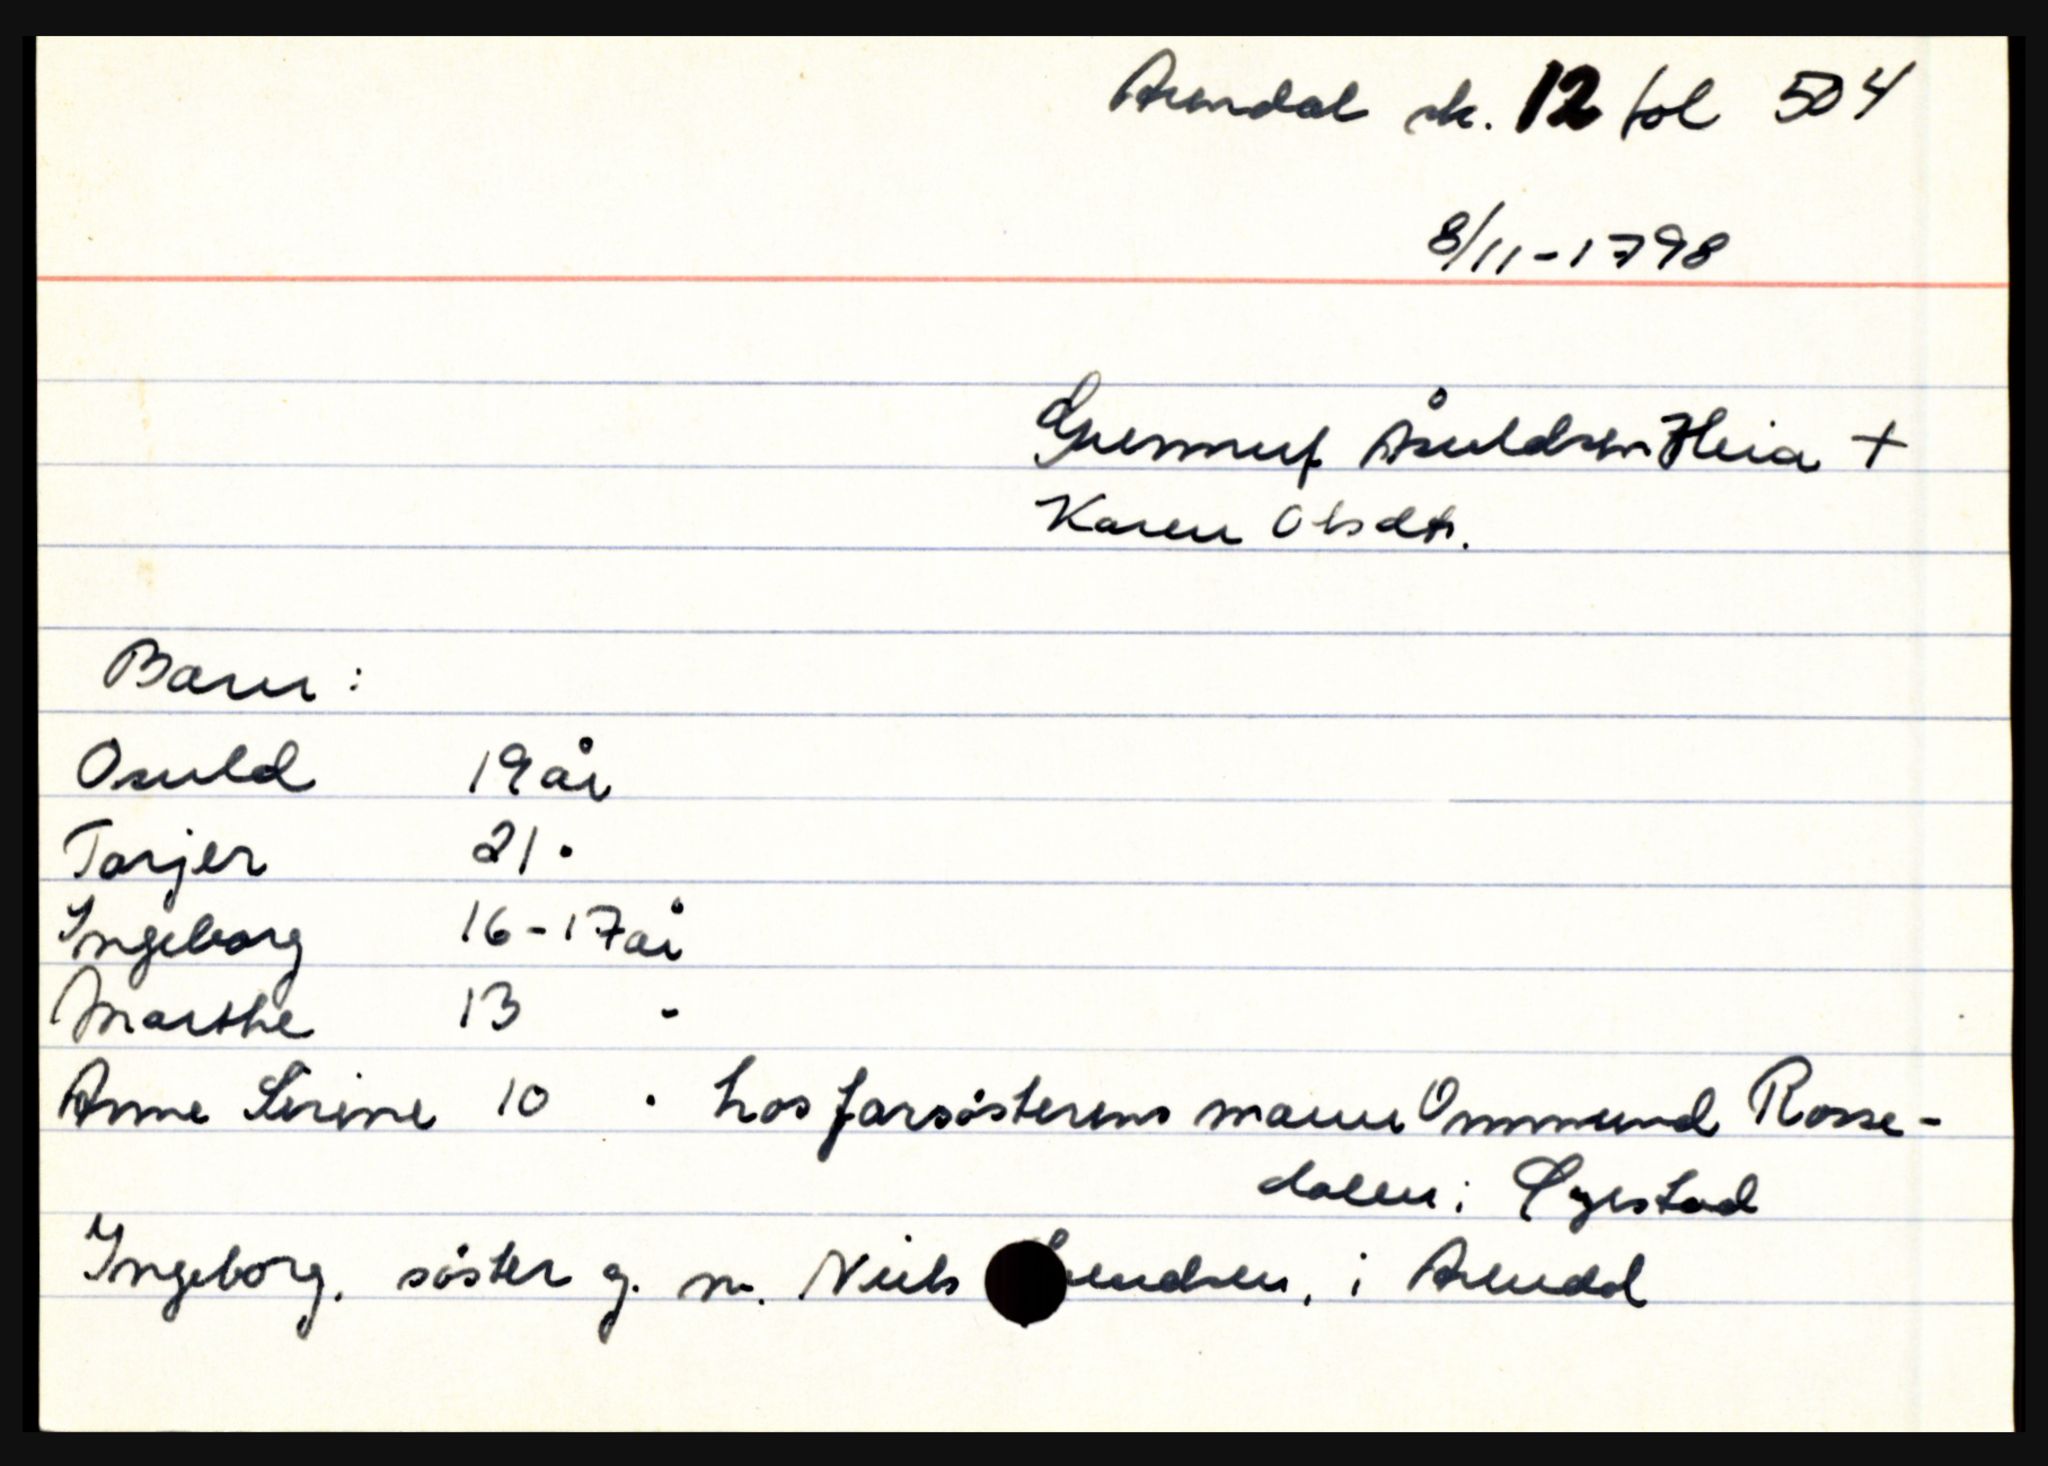 Arendal sk. 12 fol 504
8/11-1798
Gunnuf Åsuldsen Heia +
Karen Olsdtr.
Barn :
Osuld 19 år
Tarjer 21 "
Ingeborg 16-17 år
Marthe 13 "
Anne Serine 10 " hos farsösterens mann Ommund Rosse-
dalen i Øyestad
Ingeborg. söster g. m. Niels i Arendal